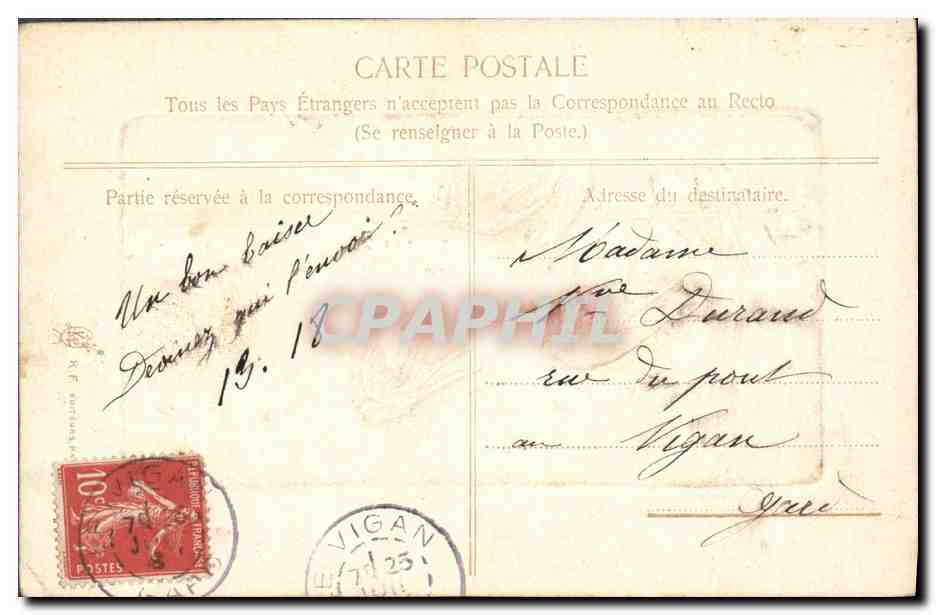 CARTE POSTALE
Tous les Pays Étrangers n'acceptent pas la Correspondance au Recto
(Se renseigner à la Poste.)
Partie réservée à la correspondance.
Adresse du destinataire.
Un bon baiser
Devinez qui l'envoi?
13. 18
Madame
Vve Durand
rue du pont
au Vigan
Gard
CPAPHIL
K. F. EDITEURS, P
RÉPUBLIQUE FRANÇAISE
10c
POSTES
VIGAN
GARD
LE VIGAN
7 25